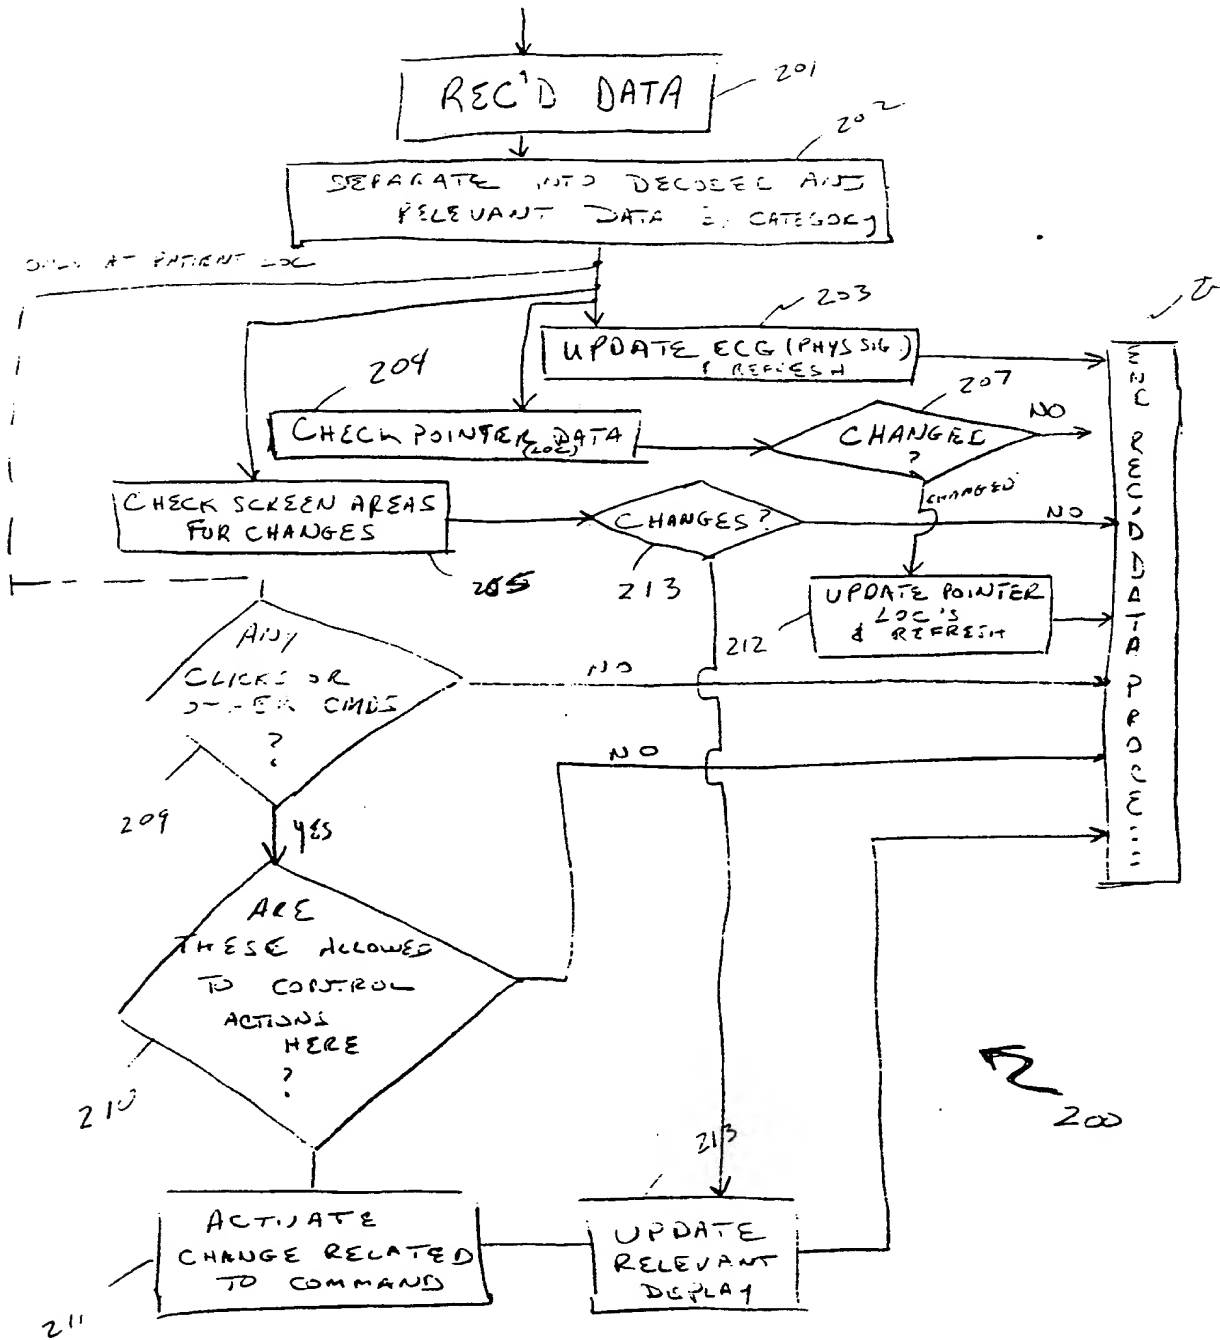 REC'D DATA
201
202
SEPARATE INTO DECODED AND
RELEVANT DATA CATEGORY
ONLY AT PATIENT LOC
203
UPDATE ECG (PHYS SIG.)
& REFRESH
204
CHECK POINTER DATA
(LOC)
207
CHANGED
?
NO
CHANGED
CHECK SCREEN AREAS
FOR CHANGES
205
CHANGES?
213
NO
UPDATE POINTER
LOC'S
& REFRESH
212
ANY
CLICKS OR
OTHER CMDS
?
209
NO
YES
NO
ARE
THESE ALLOWED
TO CONTROL
ACTIONS
HERE
?
210
200
213
ACTIVATE
CHANGE RELATED
TO COMMAND
211
UPDATE
RELEVANT
DISPLAY
REC'D DATA